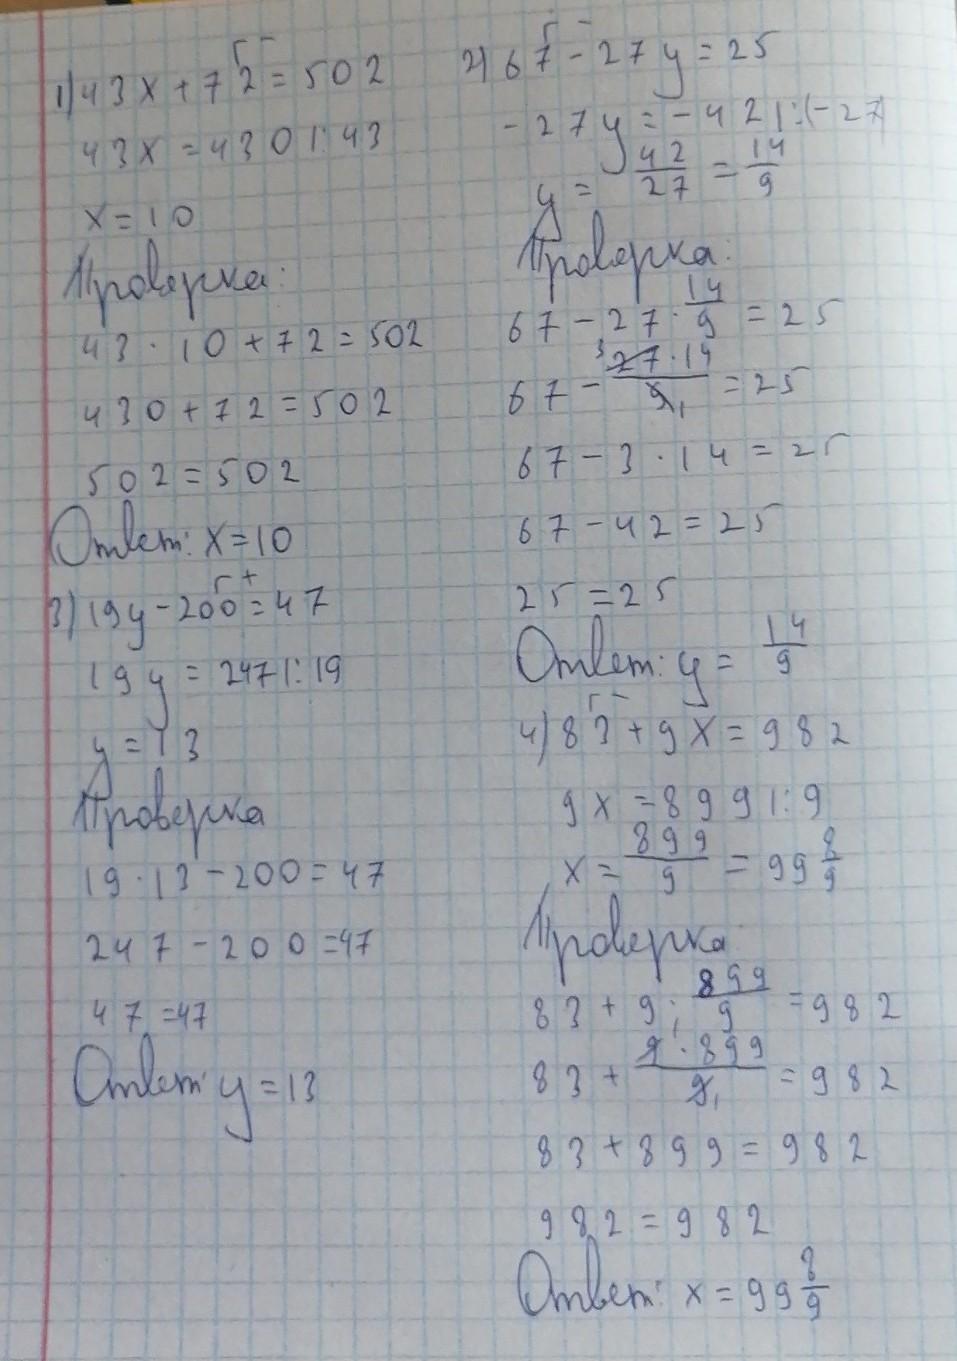 1) 43x + 72 = 502
43x = 430 |:43
x = 10
Проверка:
43 · 10 + 72 = 502
430 + 72 = 502
502 = 502
Ответ: x = 10
3) 19y - 200 = 47
19y = 247 |:19
y = 13
Проверка
19 · 13 - 200 = 47
247 - 200 = 47
47 = 47
Ответ: y = 13
2) 67 - 27y = 25
-27y = -42 |:(-27)
y = 42/27 = 14/9
Проверка:
67 - 27 · 14/9 = 25
67 - 27 · 14/9 = 25
67 - 3 · 14 = 25
67 - 42 = 25
25 = 25
Ответ: y = 14/9
4) 83 + 9x = 982
9x = 899 |:9
x = 899/9 = 99 8/9
Проверка:
83 + 9 · 899/9 = 982
83 + 9 · 899/9 = 982
83 + 899 = 982
982 = 982
Ответ: x = 99 8/9